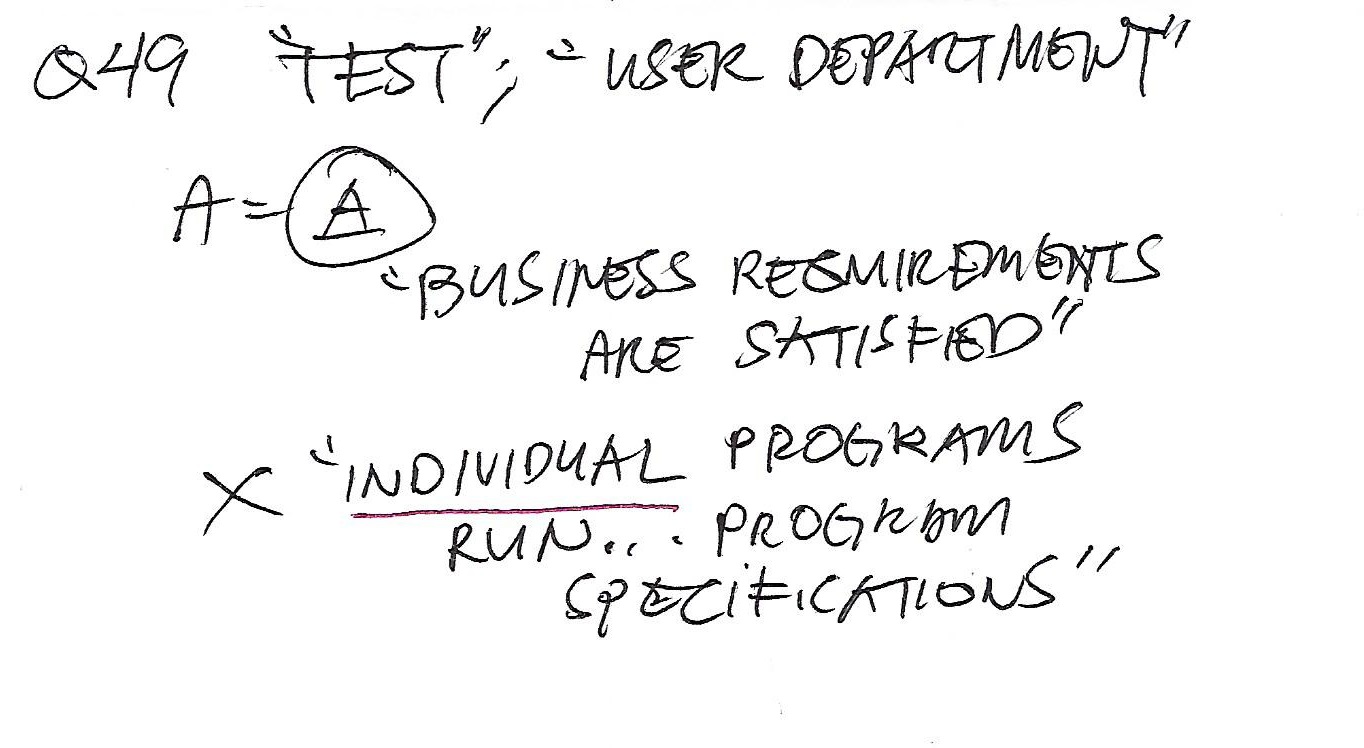 Q49 "TEST"; "USER DEPARTMENT"
A = A
"BUSINESS REQUIREMENTS
ARE SATISFIED"
X "INDIVIDUAL PROGRAMS
RUN... PROGRAM
SPECIFICATIONS"